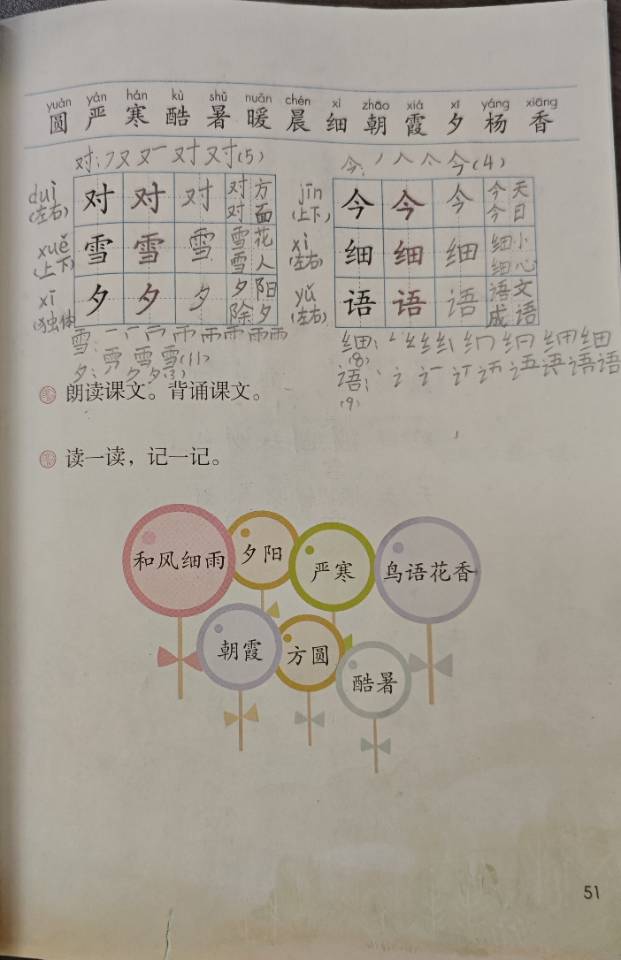 yuán yán hán kù shǔ nuǎn chén xì zhāo xiá xī yáng xiāng
圆 严 寒 酷 暑 暖 晨 细 朝 霞 夕 杨 香
对：フ又 对 对(5)
今：丿 人 亽 今(4)
duì
(左右)
对 对 对 对方
对面
jīn
(上下)
今 今 今 今天
今日
xuě
(上下)
雪 雪 雪 雪花
雪人
xì
(左右)
细 细 细 细小
细心
xī
(独体)
夕 夕 夕 夕阳
除夕
yǔ
(左右)
语 语 语 语文
成语
雪：
雪(11)
夕：夕(3)
细：细
(8)
语：语
(9)
朗读课文。背诵课文。
读一读，记一记。
和风细雨
夕阳
严寒
鸟语花香
朝霞
方圆
酷暑
51